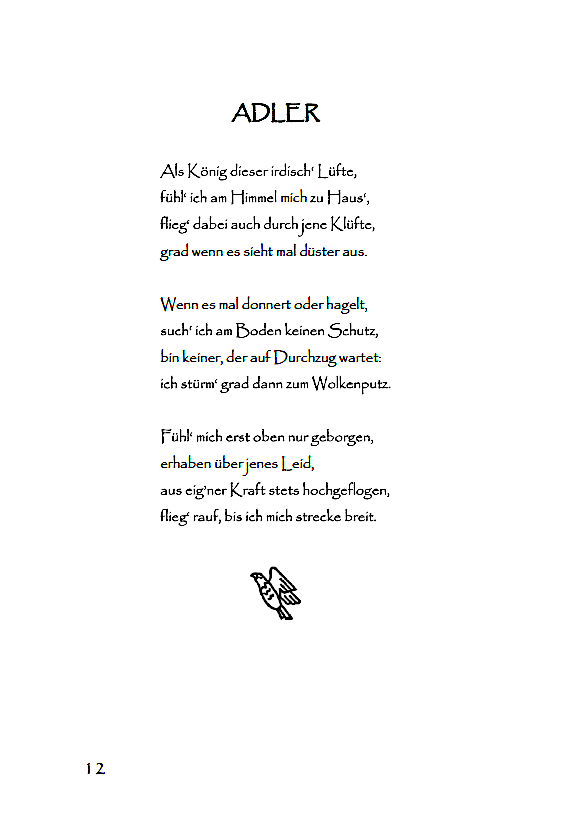 ADLER
Als König dieser irdisch‘ Lüfte,
fühl‘ ich am Himmel mich zu Haus‘,
flieg‘ dabei auch durch jene Klüfte,
grad wenn es sieht mal düster aus.
Wenn es mal donnert oder hagelt,
such‘ ich am Boden keinen Schutz,
bin keiner, der auf Durchzug wartet:
ich stürm‘ grad dann zum Wolkenputz.
Fühl‘ mich erst oben nur geborgen,
erhaben über jenes Leid,
aus eig’ner Kraft stets hochgeflogen,
flieg‘ rauf, bis ich mich strecke breit.
12